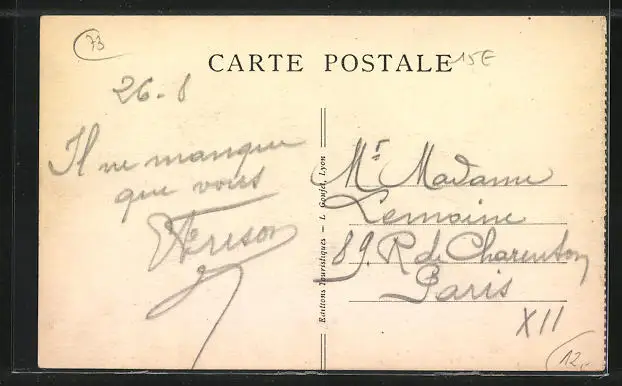 73
CARTE POSTALE
15E
26-8
Il ne manque
que vous
Editions Touristiques — L. Goujet, Lyon
Mr Madame
Lemoine
89. R de Charenton
Paris
XII
12